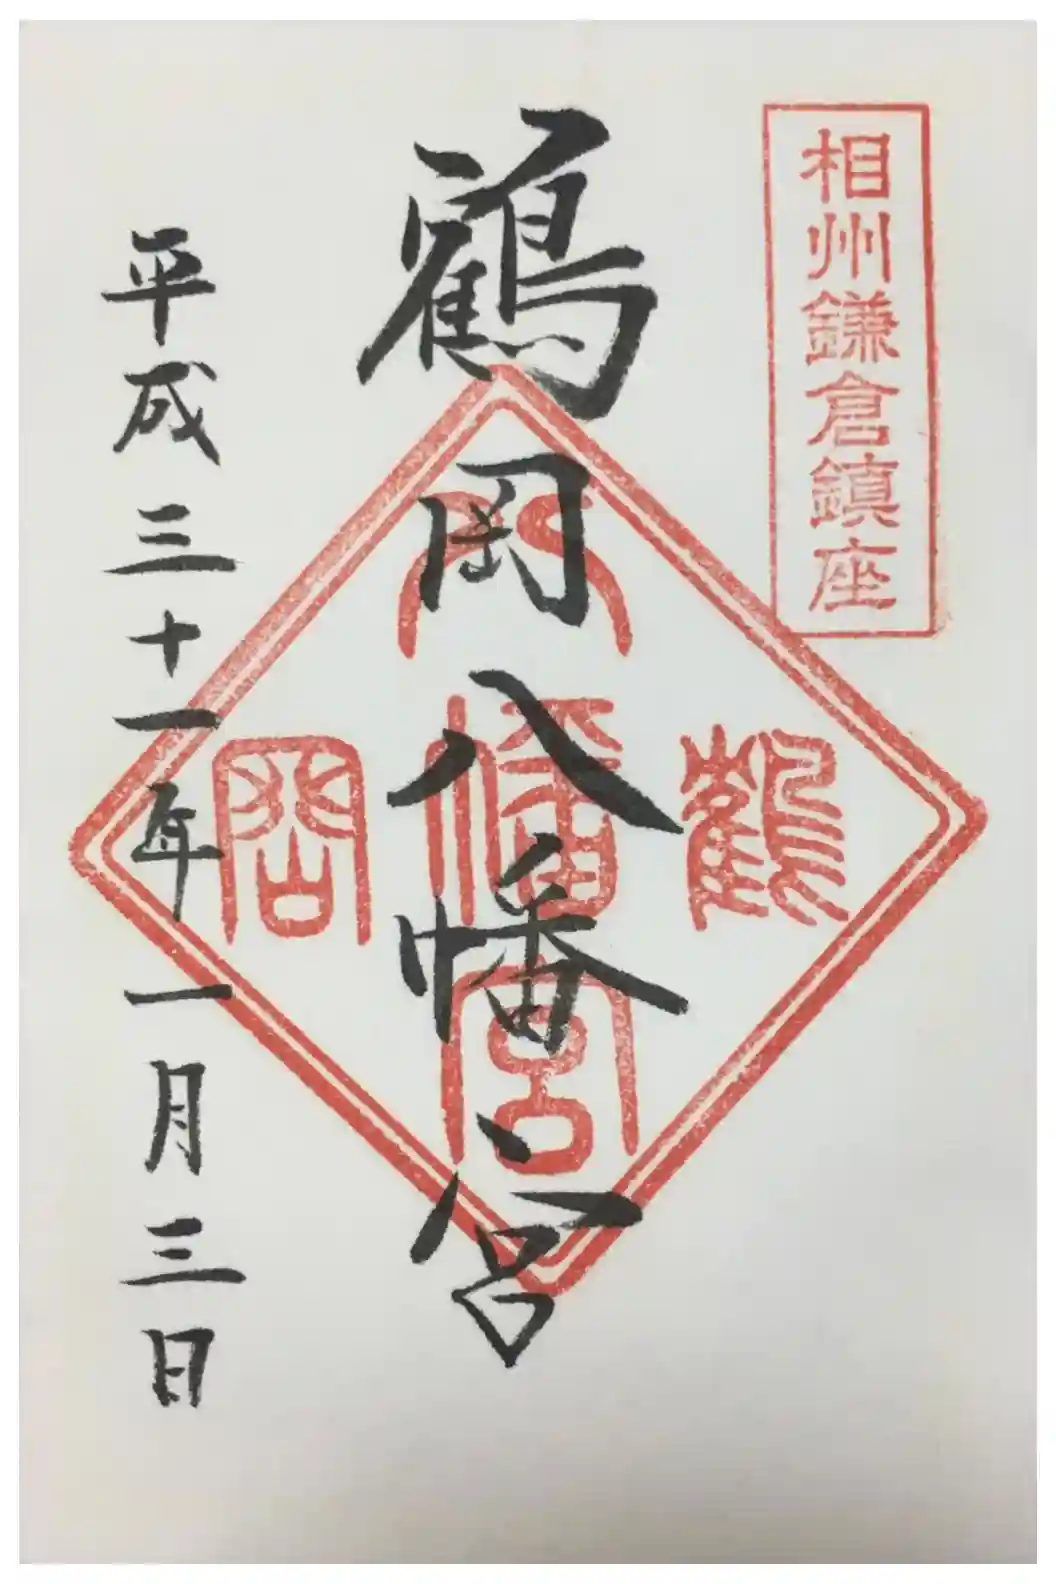 相州鎌倉鎮座
鶴岡八幡宮
八
鶴幡岡
宮
平成三十一年一月三日